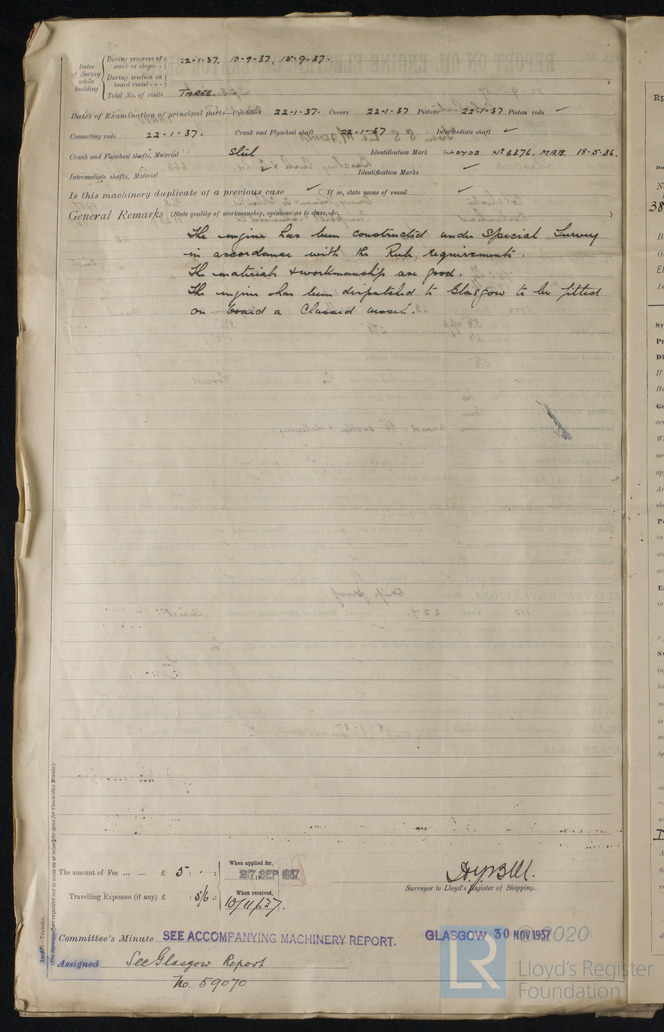 Dates of Survey while building
During progress of work in shops - - 22-1-37, 10-9-37, 15-9-37.
During erection on board vessel - - -
Total No. of visits THREE.
Dates of Examination of principal parts—Cylinders 22-1-37. Covers 22-1-37 Pistons 22-1-37 Piston rods ✓
Connecting rods 22-1-37. Crank and Flywheel shaft 22-1-37 Intermediate shaft ✓
Crank and Flywheel shafts, Material Steel Identification Mark Nº 6376. M.R.B. 18-5-36.
Intermediate shafts, Material ✓ Identification Marks ✓
Is this machinery duplicate of a previous case ✓ If so, state name of vessel ✓
General Remarks (State quality of workmanship, opinions as to class, &c.
The engine has been constructed under Special Survey
in accordance with the Rule requirements.
The materials & workmanship are good.
The engine has been despatched to Glasgow to be fitted
on board a Classed vessel.
The amount of Fee ... ... £ 5 : - :
When applied for, 27 SEP 1937
Travelling Expenses (if any) £ : 5/6 :
When received, 10/11/37.
Surveyor to Lloyd's Register of Shipping.
Committee's Minute SEE ACCOMPANYING MACHINERY REPORT. GLASGOW 30 NOV 1937
Assigned See Glasgow Report
No. 59070
2020
LR
Lloyd's Register
Foundation